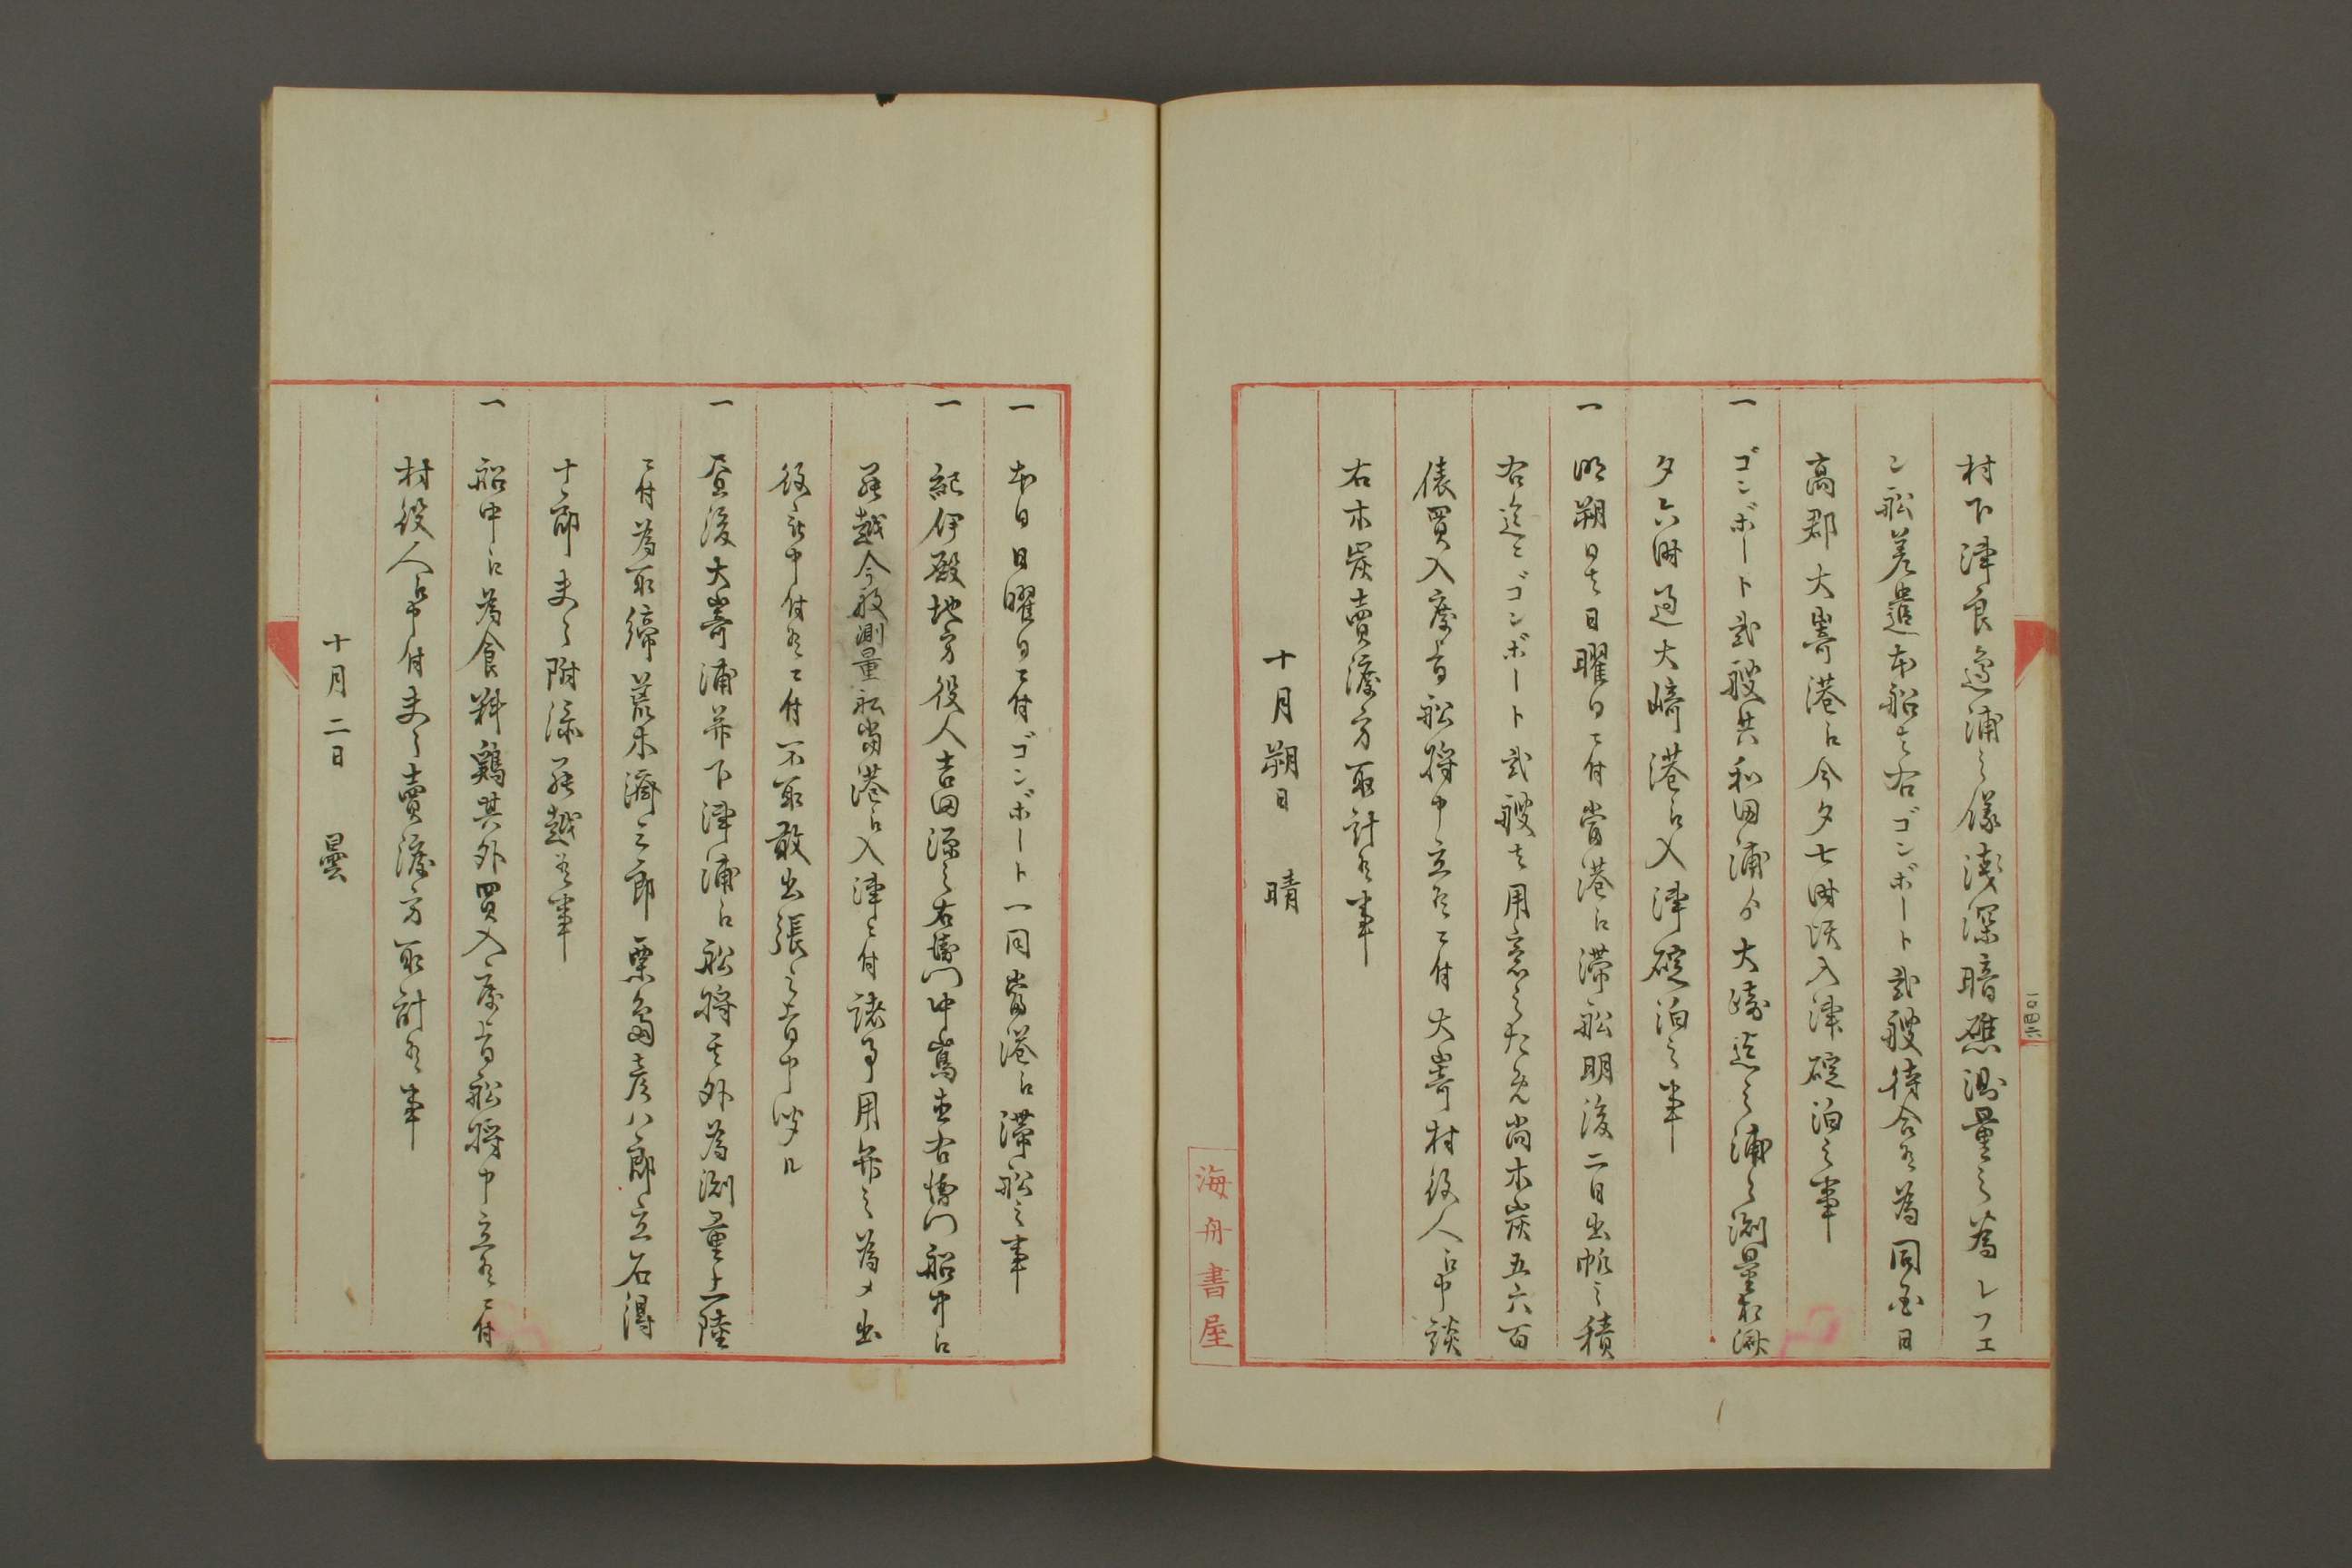 村下津良邊浦之儀淺深暗礁測量之為レフエ
ン船差遣本船者右ゴンボート貳艘待合為同日
高郡大嵜港江今夕七時頃入津碇泊之事
一 ゴンボート貳艘共和田浦ゟ大嵜迄之浦々測量相済
夕六時過大﨑港江入津碇泊之事
一 明朔日者日曜日ニ付當港江滞船明後二日出帆之積
右迄ニゴンボート貳艘者用意之ため尚木炭五六百
俵買入度旨船将申立候ニ付大嵜村役人江申談
右木炭賣渡方取計候事
十月朔日 晴
一 本日日曜日ニ付ゴンボート一同當港江滞船之事
一 紀伊殿地方役人吉田源之右衛門中嶌直右衛門船中江
罷越今般測量船當港江入津ニ付諸事用弁之為メ出
役被申付候ニ付不取敢出張之旨申聞ル
一 昼後大嵜浦并下津浦江船将其外為測量上陸
ニ付為取締荒木濟三郎粟嶋彦八郎立石得
十郎夫々附添罷越候事
一 船中江為食料鶏其外買入度旨船将申立候ニ付
村役人江申付夫々賣渡方取計候事
十月二日 曇
海舟書屋
一〇四六